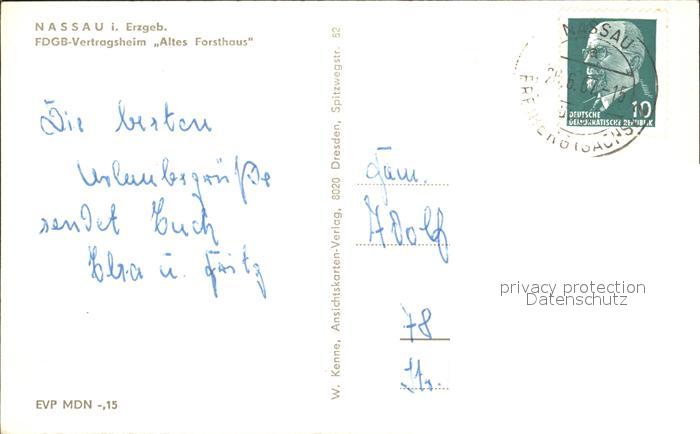 NASSAU i. Erzgeb.
FDGB-Vertragsheim „Altes Forsthaus"
Die besten
Urlaubsgrüße
sendet Euch
Elra u. Fritz
EVP MDN -,15
W. Kenne, Ansichtskarten-Verlag, 8020 Dresden, Spitzwegstr. 82
NASSAU
FREIBERG (SACHS
DEUTSCHE
DEMOKRATISCHE REPUBLIK
10
Fam.
Adolf
78
Str.
privacy protection
Datenschutz